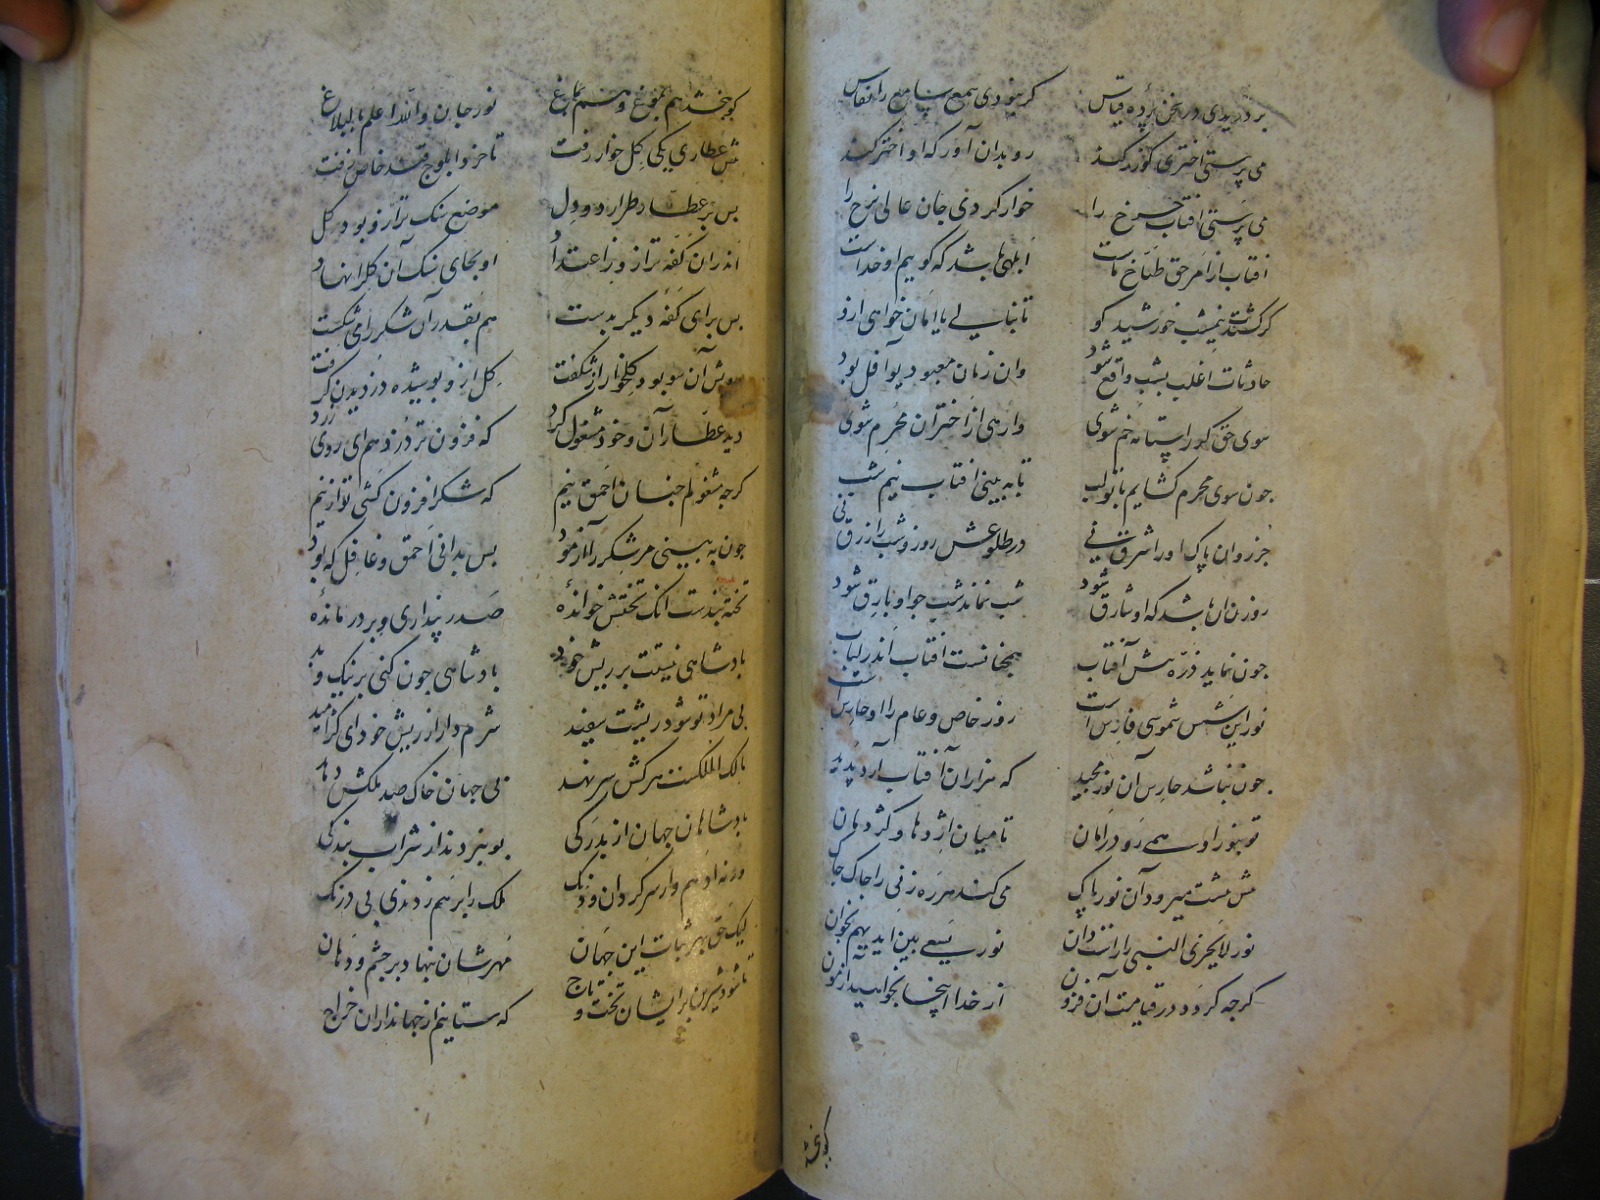 بر دریدی در سخن پرده قیاس کر نبودی سمع سامع را نعاس
می پرستی اختری کو زر کند رو بدان آور که او اختر کند
می پرستی افتاب چرخ را خوار کردی جان عالی نرخ را
افتاب از امر حق طباخ ماست ابلهی باشد که کوییم او خداست
تا بنالی یا امان خواهی ازو
حادثات اغلب بشب واقع شود وان زمان معبود تو آفل بود
سوی حق کر راستانه خم شوی وا رهی از اختران محرم شوی
جون سوی محرم کشایم با تو لب تا به بینی افتاب نیم شب
جز روان پاک او را شرق نی در طلوعش روز و شب را فرق نی
روز ان باشد که او شارق شود شب نماند شب جو او بارق شود
جون نماید ذره پیش آفتاب همجنانست افتاب اندر لباب
روز خاص و عام را او حارس است
جون نباشد حارس آن نور مجید که هزاران آفتاب آرد پدید
تو بنور او همی رو در امان تا میان اژدها و کژدمان
پیش پیشت میرود آن نور پاک می کند هر ره زنی را جاک جاک
نور لایخزی النبی راست دان نور یسعی بین ایدیهم بخوان
کرجه کردد در قیامت آن فزون از خدا اینجا بخواهید ازمون
کو بخشد
کو ببخشد هم بمیغ و هم بماغ نور جان والله اعلم بالبلاغ
پیش عطاری یکی کل خوار رفت تا خرد ابلوج قند خاص زفت
بس بر عطار طرار دو دل موضع سنک ترازو بود کل
اندران کفه ترازو ز اعتداد او بجای سنک آن کل را نهاد
بس برای کفه دیکر بدست هم بقدر آن شکر را می شکست
رویش آن سو بود کلخوار از شکفت کل ازو پوشیده دزدیدن کرفت
دید عطار آن و خود مشغول کرد که فزون تر دزد هم ای روی زرد
کرجه مشغولم جنان احمق نیم که شکر افزون کشی تو از نیم
جون به بینی مر شکر را ز آزمود بس بدانی احمق و غافل که بود
تخته بندست انک تختش خوانده صدر پنداری و بر در مانده
بادشاهی نیستت بر ریش خود بادشاهی جون کنی بر نیک و بد
بی مراد تو شود ریشت سفید شرم دار از ریش خود ای کژ امید
مالک الملکست هر کش سر نهد بی جهان خاک صد ملکش دهد
بادشاهان جهان از بدرکی بو نبردند از شراب بندکی
ورنه ادهم وار سرکردان و دنک ملک را بر هم زدندی بی درنک
لیک حق بهر ثبات این جهان مهرشان بنهاد بر جشم و دهان
تا شود شیرین بریشان تخت و تاج که ستانیم از جهانداران خراج